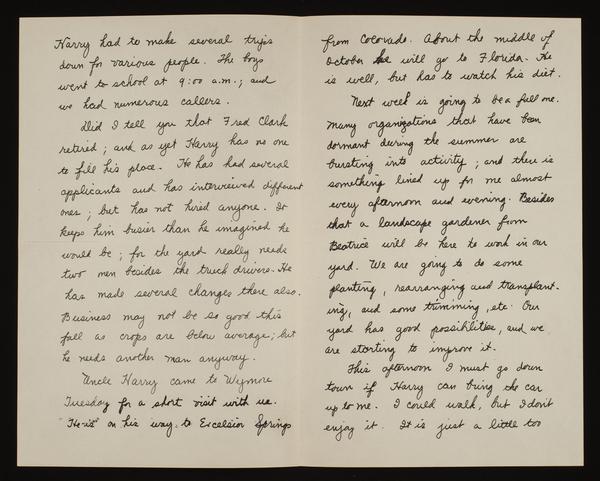 Harry had to make several trips
down for various people. The boys
went to school at 9:00 a.m.; and
we had numerous callers.
Did I tell you that Fred Clark
retired; and as yet Harry has no one
to fill his place. He has had several
applicants and has interviewed different
ones; but has not hired anyone. It
keeps him busier than he imagined he
would be; for the yard really needs
two men besides the truck drivers. He
has made several changes there also.
Business may not be so good this
fall as crops are below average; but
he needs another man anyway.
Uncle Harry came to Wymore
Tuesday for a short visit with us.
"He is" on his way to Excelsior Springs
from Colorado. About the middle of
October he will go to Florida. He
is well, but has to watch his diet.
Next week is going to be a full one.
Many organizations that have been
dormant during the summer are
bursting into activity; and there is
something lined up for me almost
every afternoon and evening. Besides
that a landscape gardener from
Beatrice will be here to work in our
yard. We are going to do some
planting, rearranging and transplant-
ing, and some trimming, etc. Our
yard has good possibilities, and we
are starting to improve it.
This afternoon I must go down
town if Harry can bring the car
up to me. I could walk, but I don't
enjoy it. It is just a little too